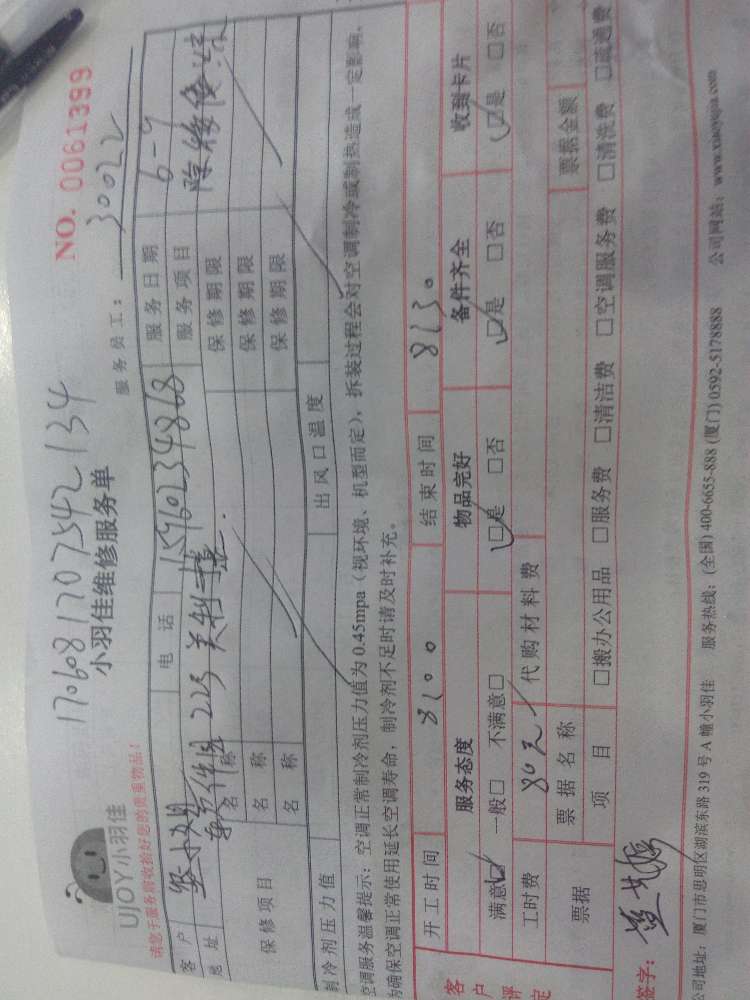 1706081707542134
NO. 0061399
小羽佳维修服务单
UJOY小羽佳
服务员工: 30022
请您于服务前收捡好您的贵重物品!
客户 电话 15960234868 服务日期 6-9
地址 服务项目
保修项目 名称 保修期限
名称 保修期限
名称 保修期限
制冷剂压力值 出风口温度
空调服务温馨提示:空调正常制冷剂压力值为0.45mpa(视环境、机型而定),拆装过程会对空调制冷或制热造成一定影响,
为确保空调正常使用延长空调寿命,制冷剂不足时请及时补充。
客户评定 开工时间 8:00 结束时间 8:30
服务态度 物品完好 备件齐全 收到卡片
满意☑ 一般□ 不满意□ ☑是 □否 ☑是 □否 ☑是 □否
工时费 80元 代购材料费
票据 票据名称 票据金额
项目 □搬办公用品 □服务费 □清洁费 □空调服务费 □清洗费 □疏通费
签字:
公司地址:厦门市思明区湖滨东路319号A幢小羽佳 服务热线:(全国)400-6655-888 (厦门)0592-5178888 公司网站:www.xiaoyujia.com